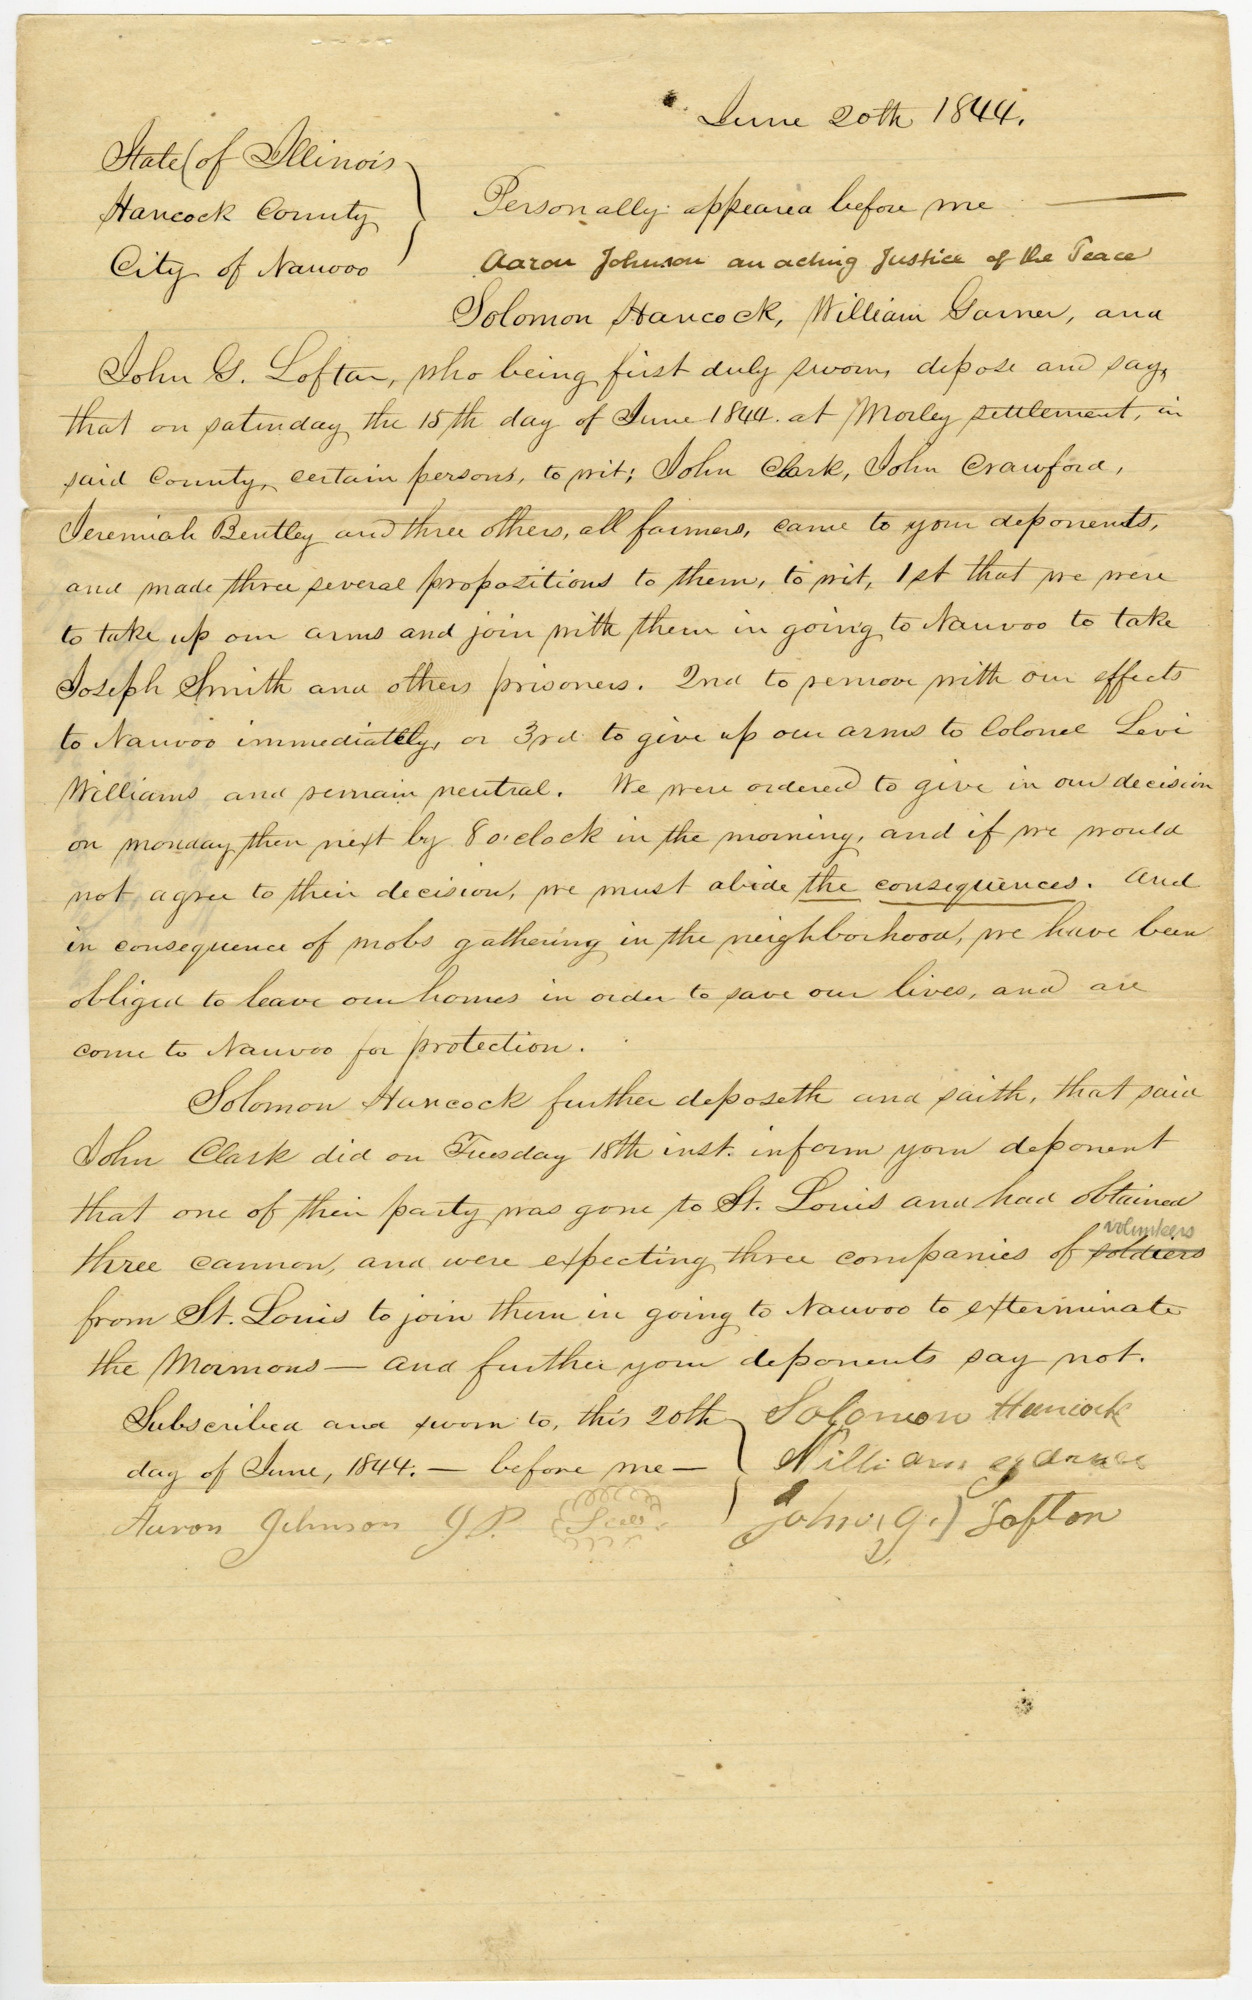 June 20th 1844.
State of Illinois
Hancock County
City of Nauvoo
Personally appeared before me
Aaron Johnson an acting Justice of the Peace
Solomon Hancock, William Garner, and
John G. Lofton, who being first duly sworn, depose and say,
that on saturday the 15th day of June 1844. at Morley settlement, in
said County, certain persons, to wit; John Clark, John Crawford,
Jeremiah Bentley and three others, all farmers, came to your deponents,
and made three several propositions to them, to wit, 1st that we were
to take up our arms and join with them in going to Nauvoo to take
Joseph Smith and others prisoners. 2nd to remove with our effects
to Nauvoo immediately, or 3rd to give up our arms to Colonel Levi
Williams and remain neutral. We were ordered to give in our decision
on monday then next by 8 o'clock in the morning, and if we would
not agree to their decision, we must abide the consequences. And
in consequence of mobs gathering in the neighborhood, we have been
obliged to leave our homes in order to save our lives, and are
come to Nauvoo for protection.
Solomon Hancock further deposeth and saith, that said
John Clark did on Tuesday 18th inst. inform your deponent
that one of their party was gone to St. Louis and had obtained
volunteers
three cannon, and were expecting three companies of soldiers
from St. Louis to join them in going to Nauvoo to exterminate
the Mormons — and further your deponents say not.
Subscribed and sworn to, this 20th
day of June, 1844. — before me —
Aaron Johnson J.P. Seal
Solomon Hancock
William garner
John (g.) Lofton